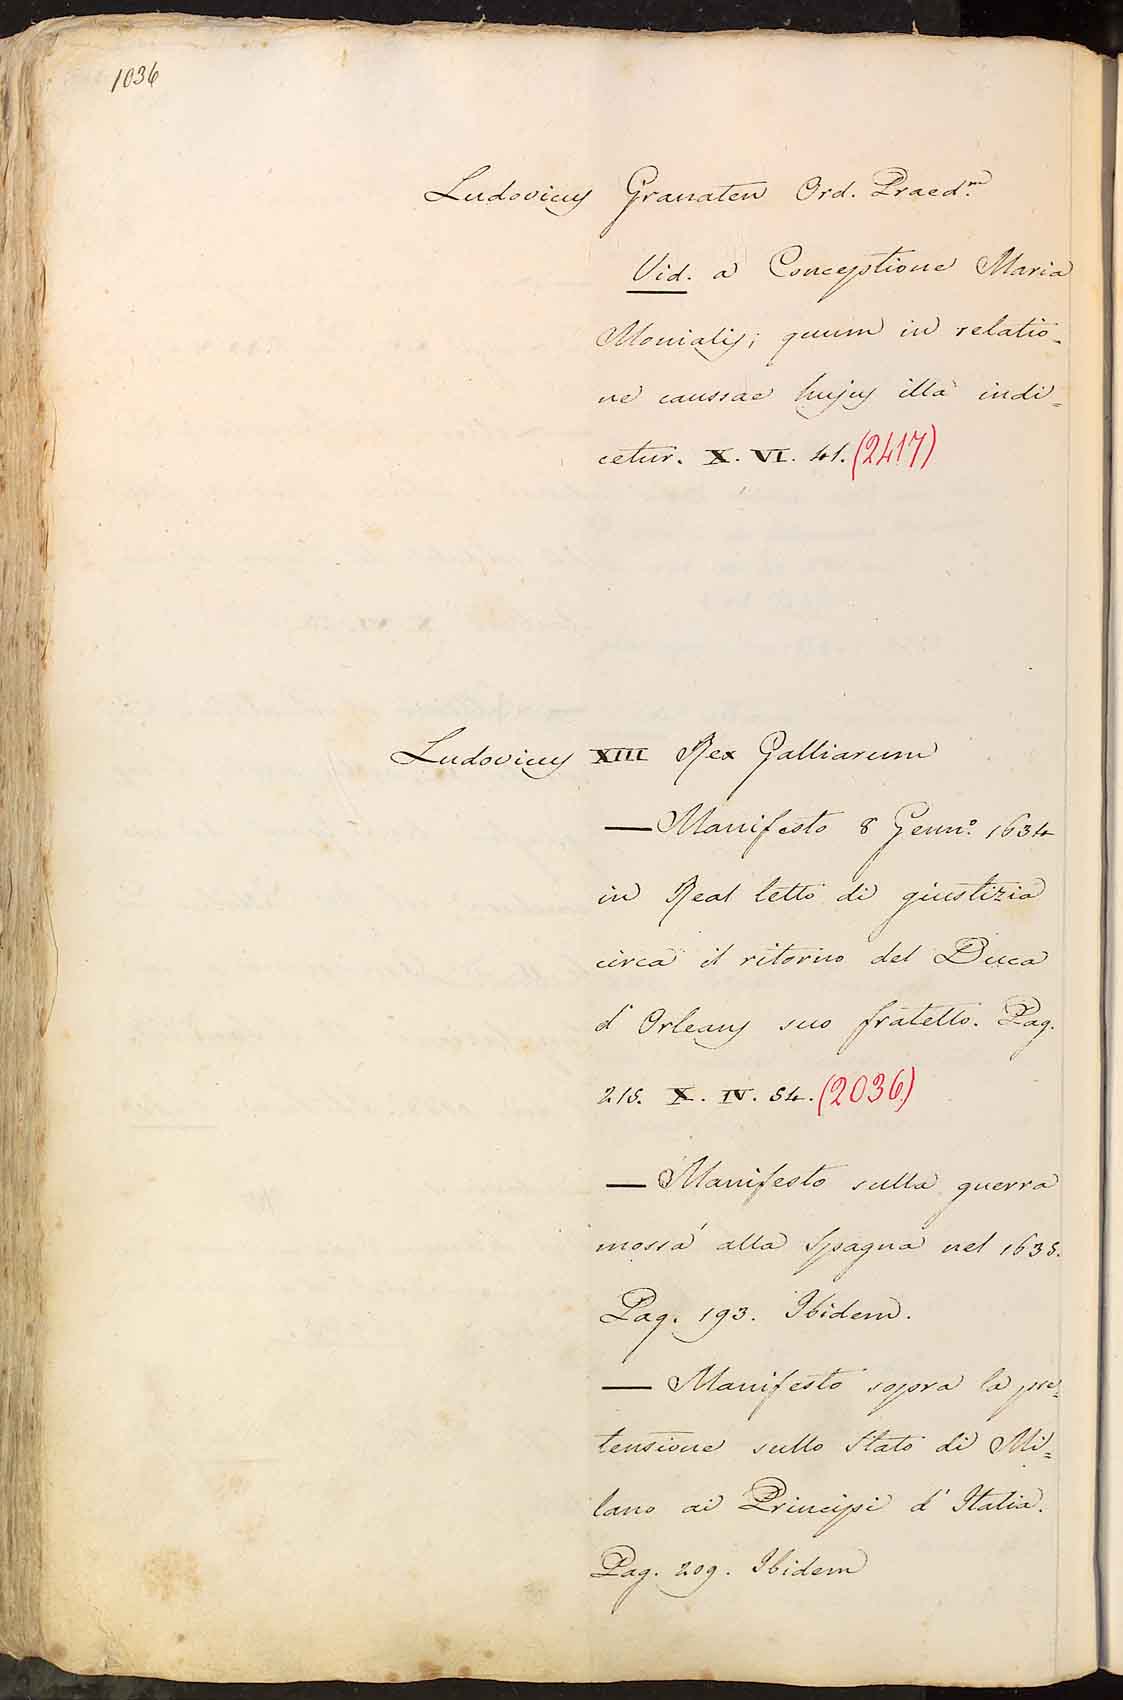 1036
Ludovicus Granaten Ord. Praed.m
Vid. a Conceptione Maria
Monialis; quum in relatio-
ne caussae hujus illa indi=
cetur. X. VI. 41. (2417)
Ludovicus XIII Rex Galliarum
— Manifesto 8 Genn.o 1634
in Real letto di giustizia
circa il ritorno del Duca
d'Orleans suo fratello. Pag.
215. X. IV. 54. (2036)
— Manifesto sulla guerra
mossa alla Spagna nel 1635.
Pag. 193. Ibidem.
— Manifesto sopra la pre=
tensione sullo Stato di Mi=
lano ai Principi d'Italia.
Pag. 209. Ibidem